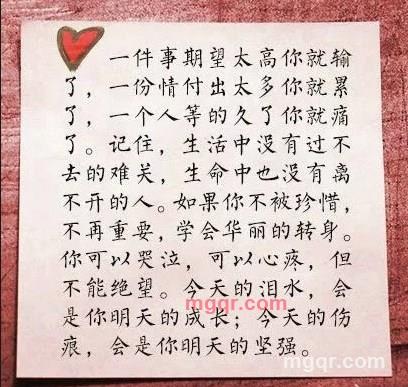 一件事期望太高你就输
了，一份情付出太多你就累
了，一个人等的久了你就痛
了。记住，生活中没有过不
去的难关，生命中也没有离
不开的人。如果你不被珍惜，
不再重要，学会华丽的转身。
你可以哭泣，可以心疼，但
不能绝望。今天的泪水，会
mgqr.com
是你明天的成长；今天的伤
痕，会是你明天的坚强。
mgqr.com